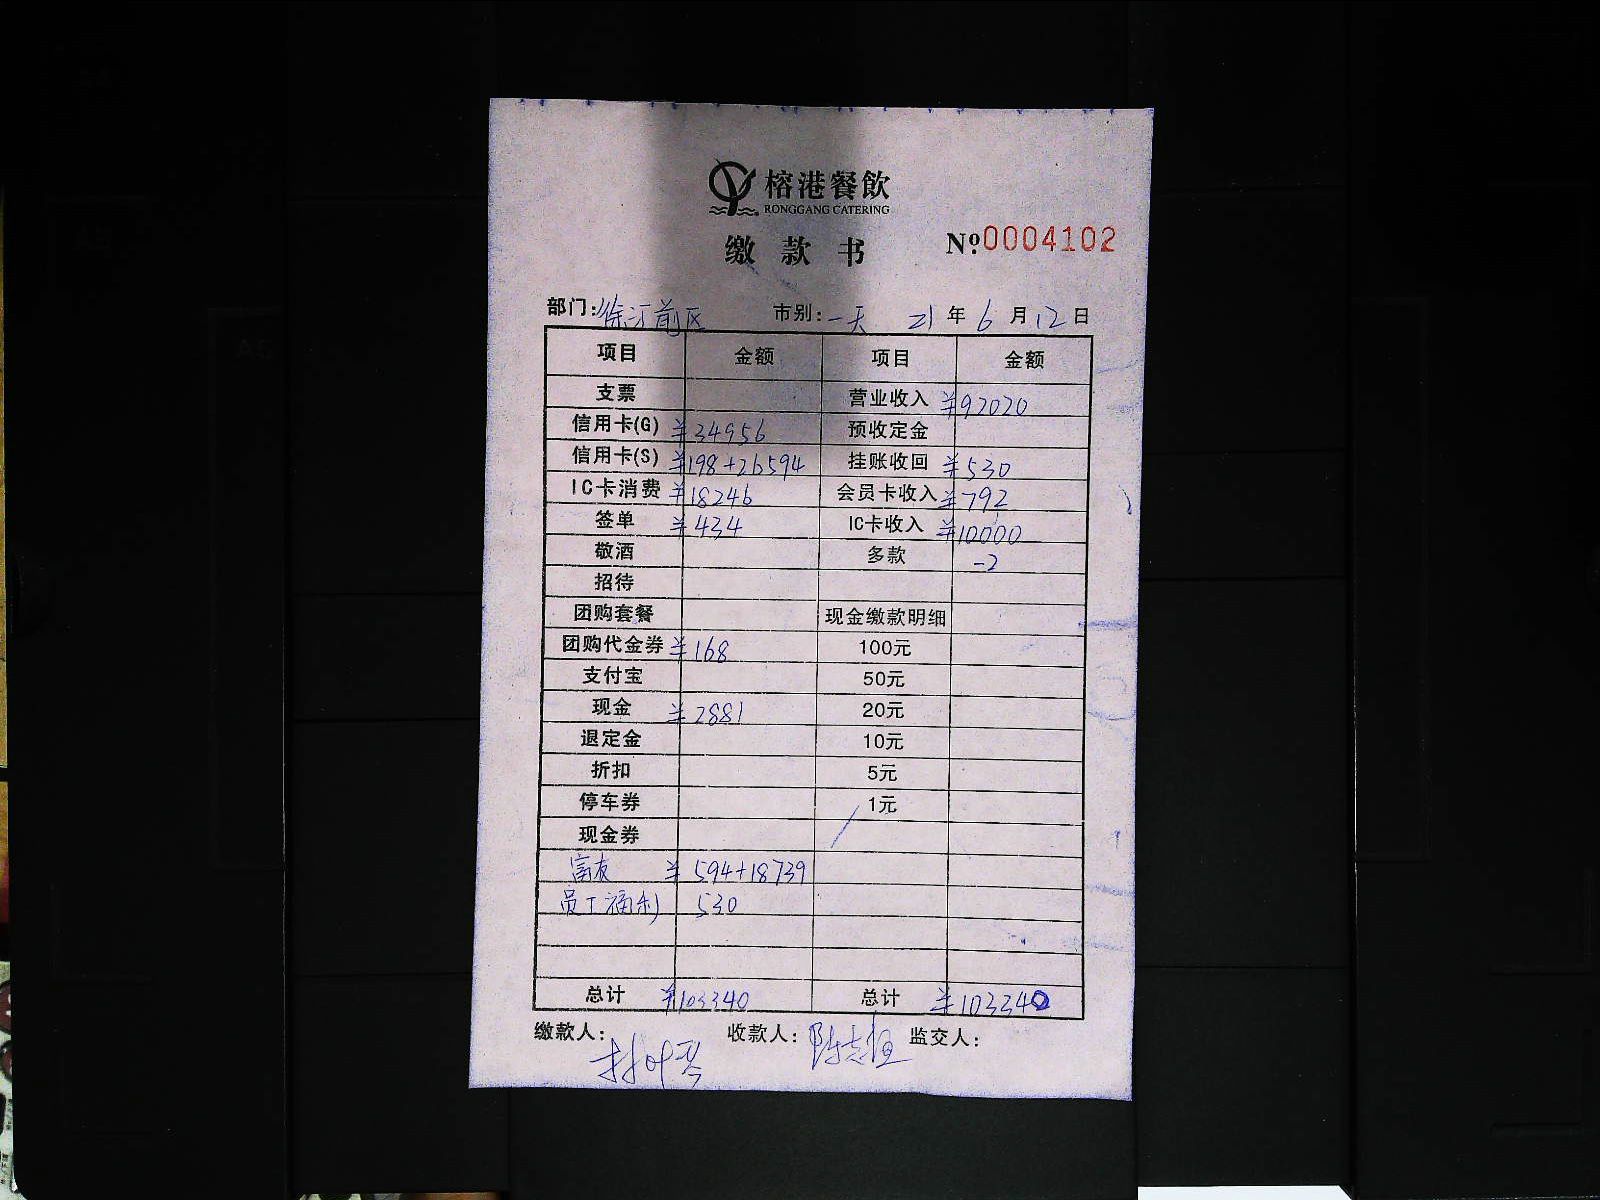 榕港餐飲
RONGGANG CATERING
缴款书 №0004102
部门:徐汇前区 市别:一天 21年6月12日
项目 金额 项目 金额
支票 营业收入 ¥92020
信用卡(G) ¥34956 预收定金
信用卡(S) ¥198+26594 挂账收回 ¥530
IC卡消费 ¥18246 会员卡收入 ¥792
签单 ¥434 IC卡收入 ¥10000
敬酒 多款 -2
招待
团购套餐 现金缴款明细
团购代金券 ¥168 100元
支付宝 50元
现金 ¥2881 20元
退定金 10元
折扣 5元
停车券 1元
现金券
富友 ¥594+18739
员工福利 530
总计 ¥103340 总计 ¥103340
缴款人: 收款人: 监交人: